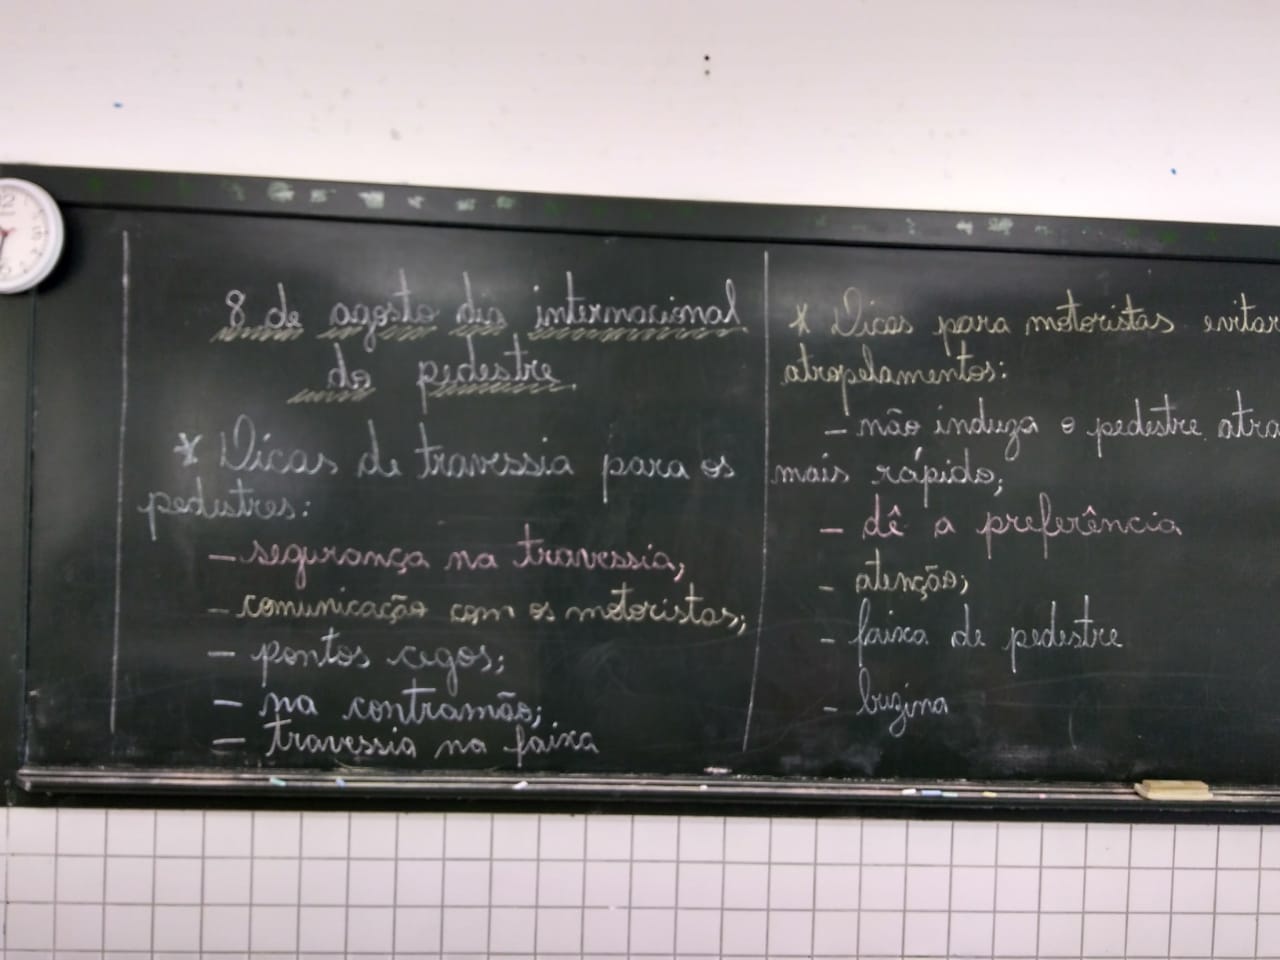 8 de agosto dia internacional
do pedestre
* Dicas de travessia para os
pedestres:
- segurança na travessia;
- comunicação com os motoristas;
- pontos cegos;
- na contramão;
- travessia na faixa
* Dicas para motoristas evitar
atropelamentos:
- não induza o pedestre atra
mais rápido;
- dê a preferência
- atenção;
- faixa de pedestre
- buzina
12